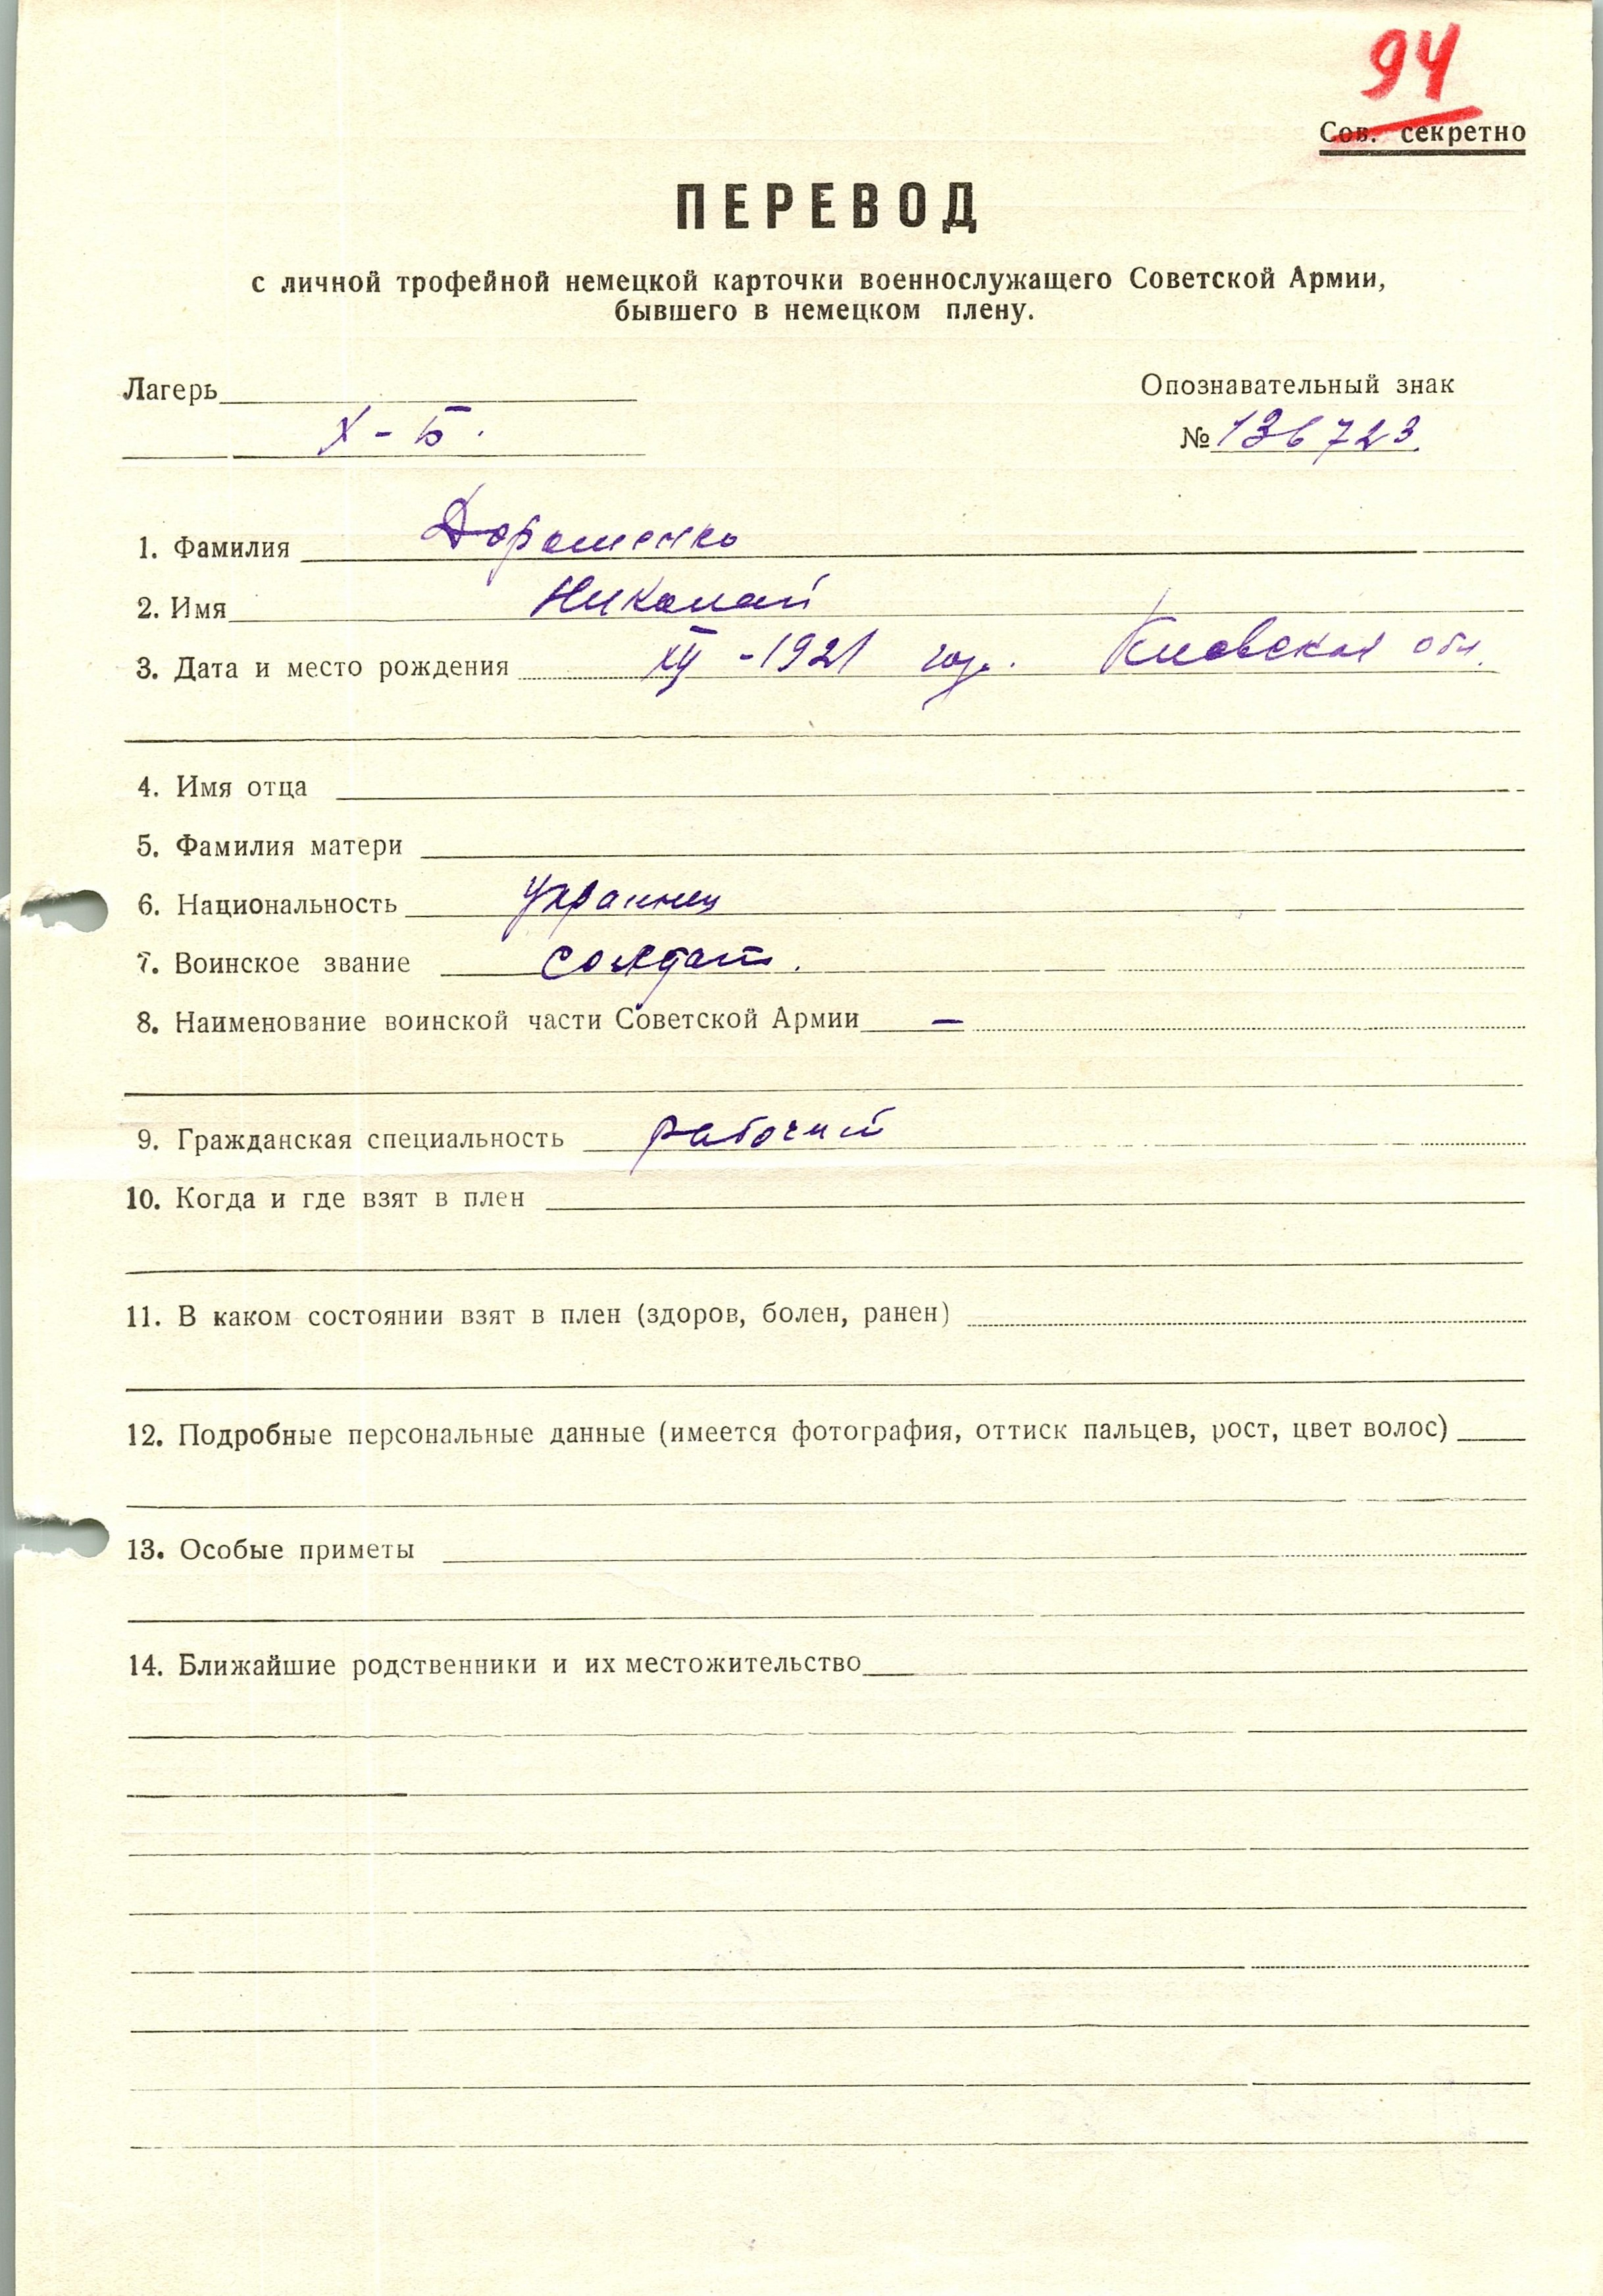 94
Сов. секретно
ПЕРЕВОД
с личной трофейной немецкой карточки военнослужащего Советской Армии,
бывшего в немецком плену.
Лагерь Опознавательный знак
X-Б. № 136723.
1. Фамилия Дорошенко
2. Имя Николай
3. Дата и место рождения -1921 год. Киевская обл.
4. Имя отца
5. Фамилия матери
6. Национальность украинец
7. Воинское звание солдат.
8. Наименование воинской части Советской Армии —
9. Гражданская специальность рабочий
10. Когда и где взят в плен
11. В каком состоянии взят в плен (здоров, болен, ранен)
12. Подробные персональные данные (имеется фотография, оттиск пальцев, рост, цвет волос)
13. Особые приметы
14. Ближайшие родственники и их местожительство